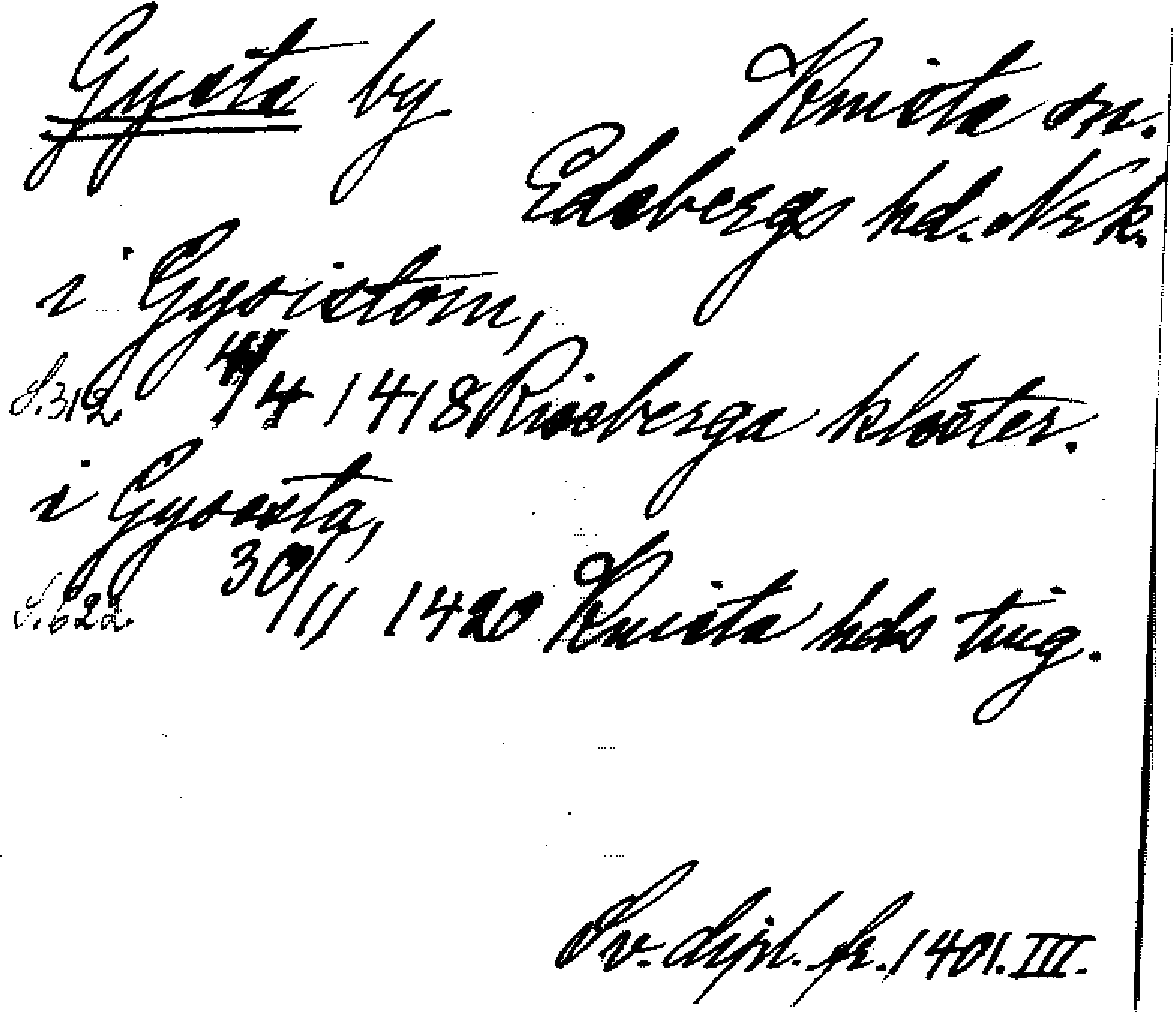 Gysta by Knista sn.
Edsbergs hd. Nrk.
i Gysistom,
S. 312 /4 1418 Riseberga kloster.
i Gysesta,
S. 622 30/11 1420 Knista hds ting.
Sv. dipl. fr. 1401. III.